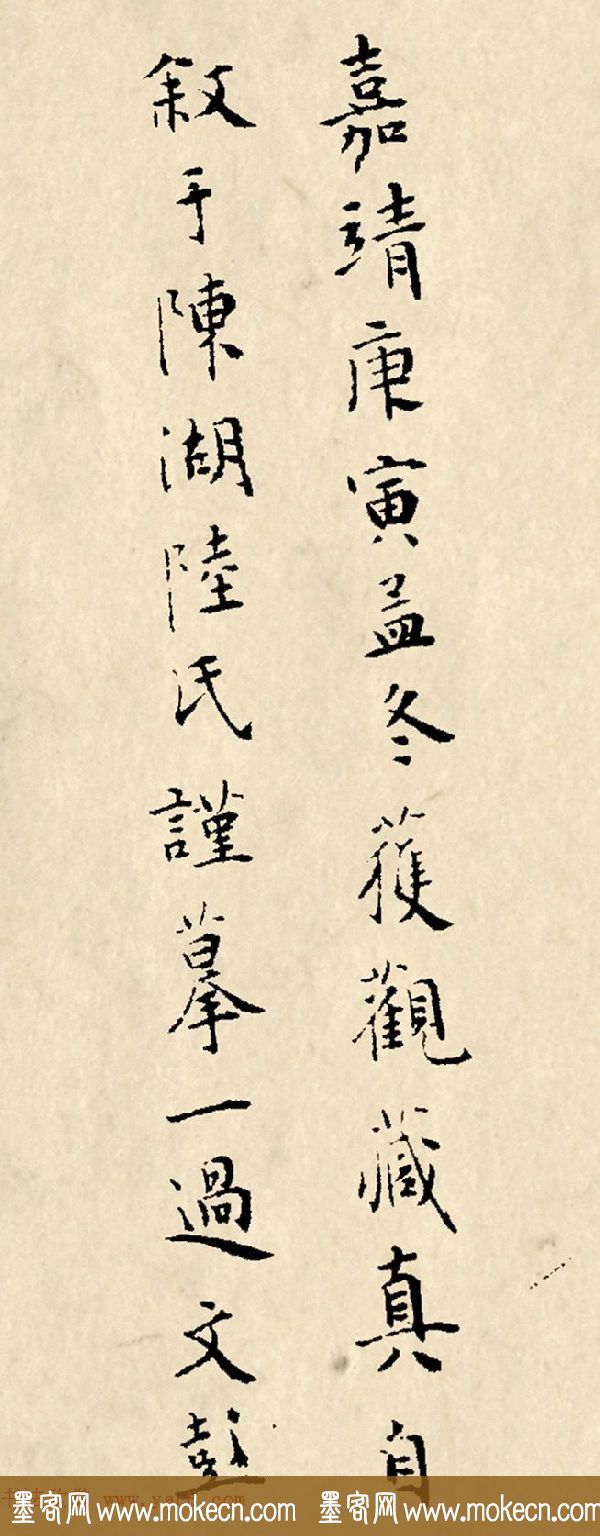 嘉靖庚寅孟冬獲觀藏真自
敘于陳湖陸氏謹摹一過文彭
墨客网 www.mokecn.com 墨客网 www.mokecn.com